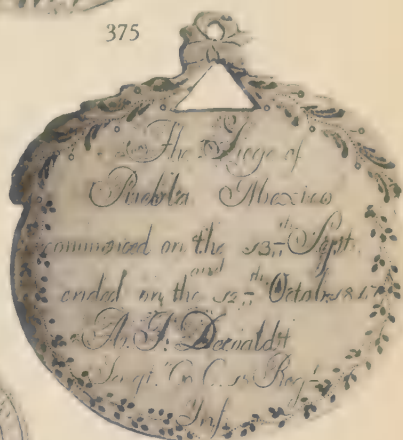 375
The Siege of
Puebla Mexico
commenced on the 13th Sept.
and
ended on the 12th Octob 1847
A. J.
Sergt. Co. C. 1st Regt.
Inf